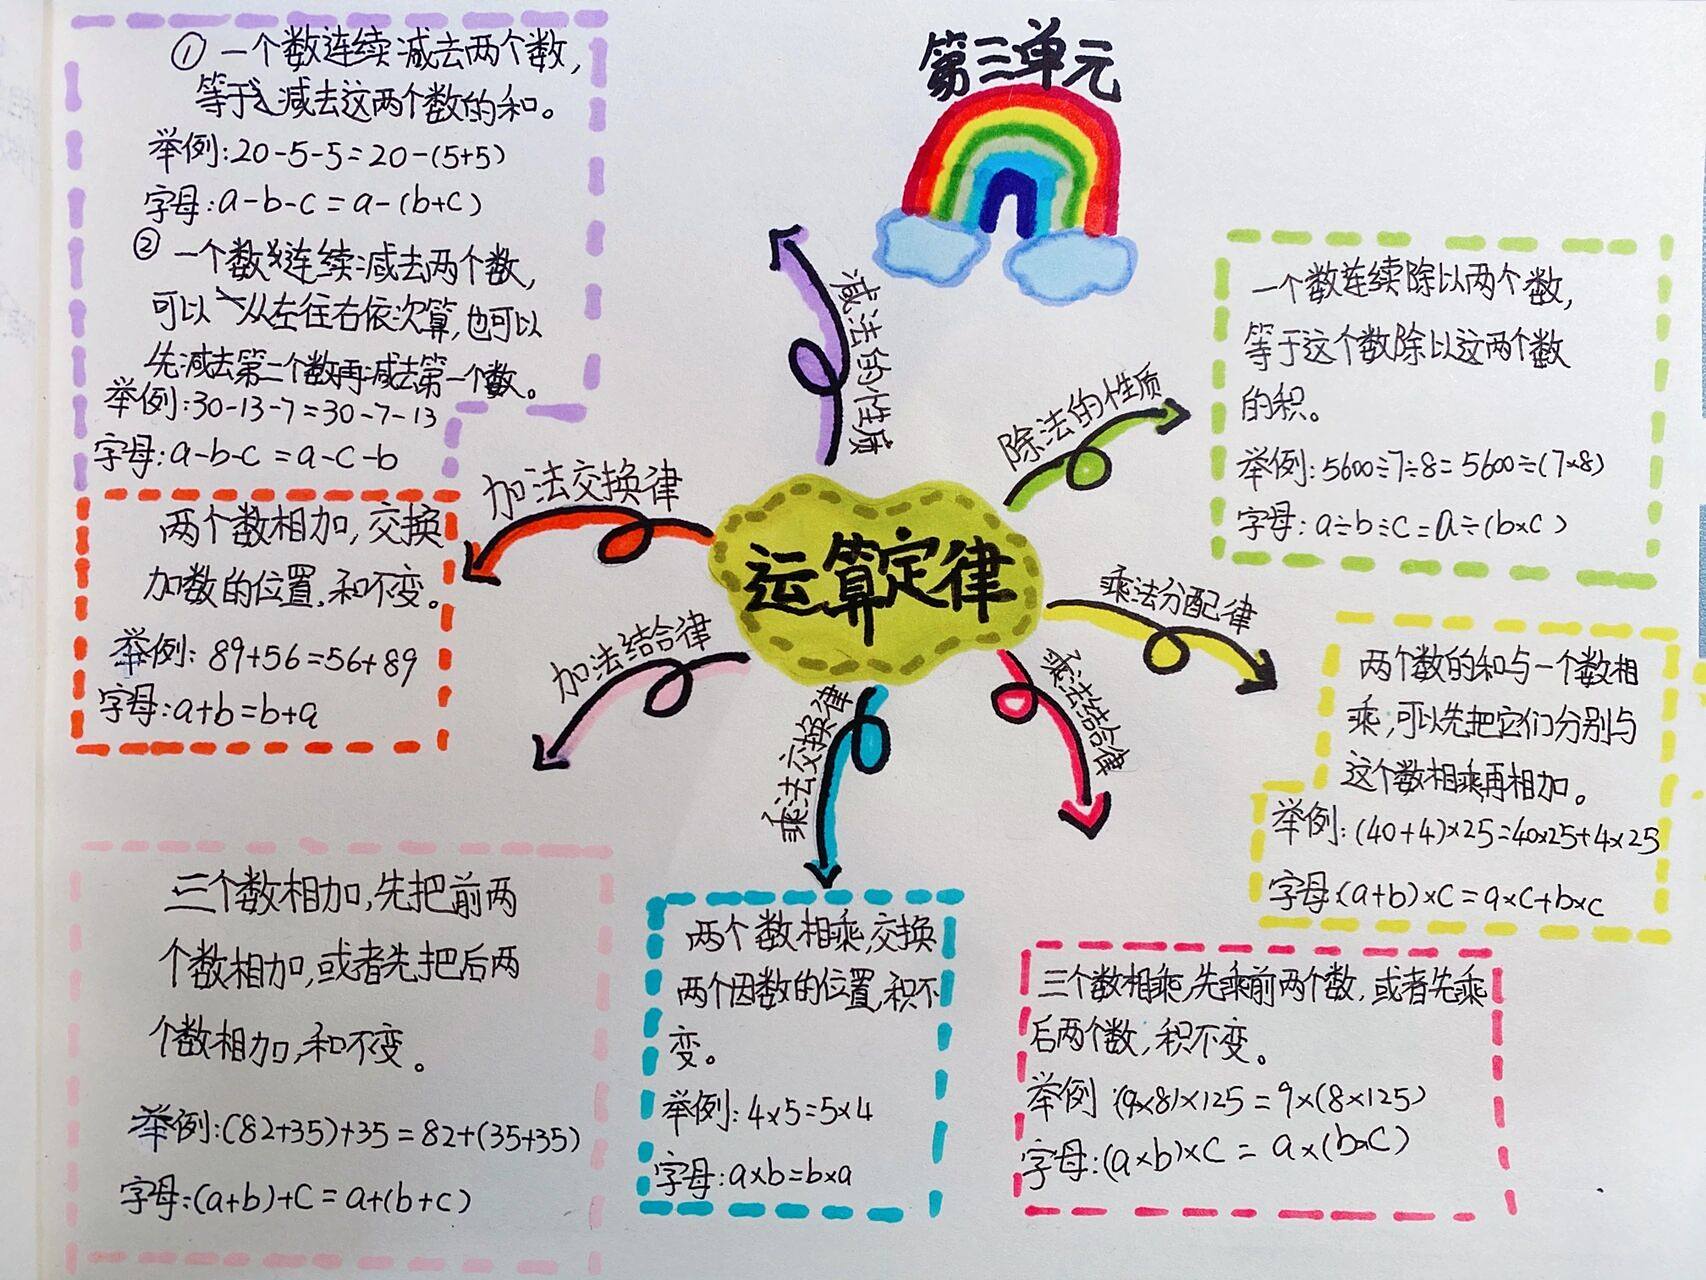 第三单元
运算定律
减法的性质
①一个数连续减去两个数,
等于减去这两个数的和。
举例:20-5-5=20-(5+5)
字母:a-b-c=a-(b+c)
②一个数连续减去两个数,
可以从左往右依次算,也可以
先减去第二个数再减去第一个数。
举例:30-13-7=30-7-13
字母:a-b-c=a-c-b
除法的性质
一个数连续除以两个数,
等于这个数除以这两个数
的积。
举例:5600÷7÷8=5600÷(7×8)
字母:a÷b÷c=a÷(b×c)
加法交换律
两个数相加,交换
加数的位置,和不变。
举例:89+56=56+89
字母:a+b=b+a
乘法分配律
两个数的和与一个数相
乘,可以先把它们分别与
这个数相乘再相加。
举例:(40+4)×25=40×25+4×25
字母:(a+b)×c=a×c+b×c
加法结合律
三个数相加,先把前两
个数相加,或者先把后两
个数相加,和不变。
举例:(82+35)+35=82+(35+35)
字母:(a+b)+c=a+(b+c)
乘法交换律
两个数相乘,交换
两个因数的位置,积不
变。
举例:4×5=5×4
字母:a×b=b×a
乘法结合律
三个数相乘,先乘前两个数,或者先乘
后两个数,积不变。
举例:(9×8)×125=9×(8×125)
字母:(a×b)×c=a×(b×c)